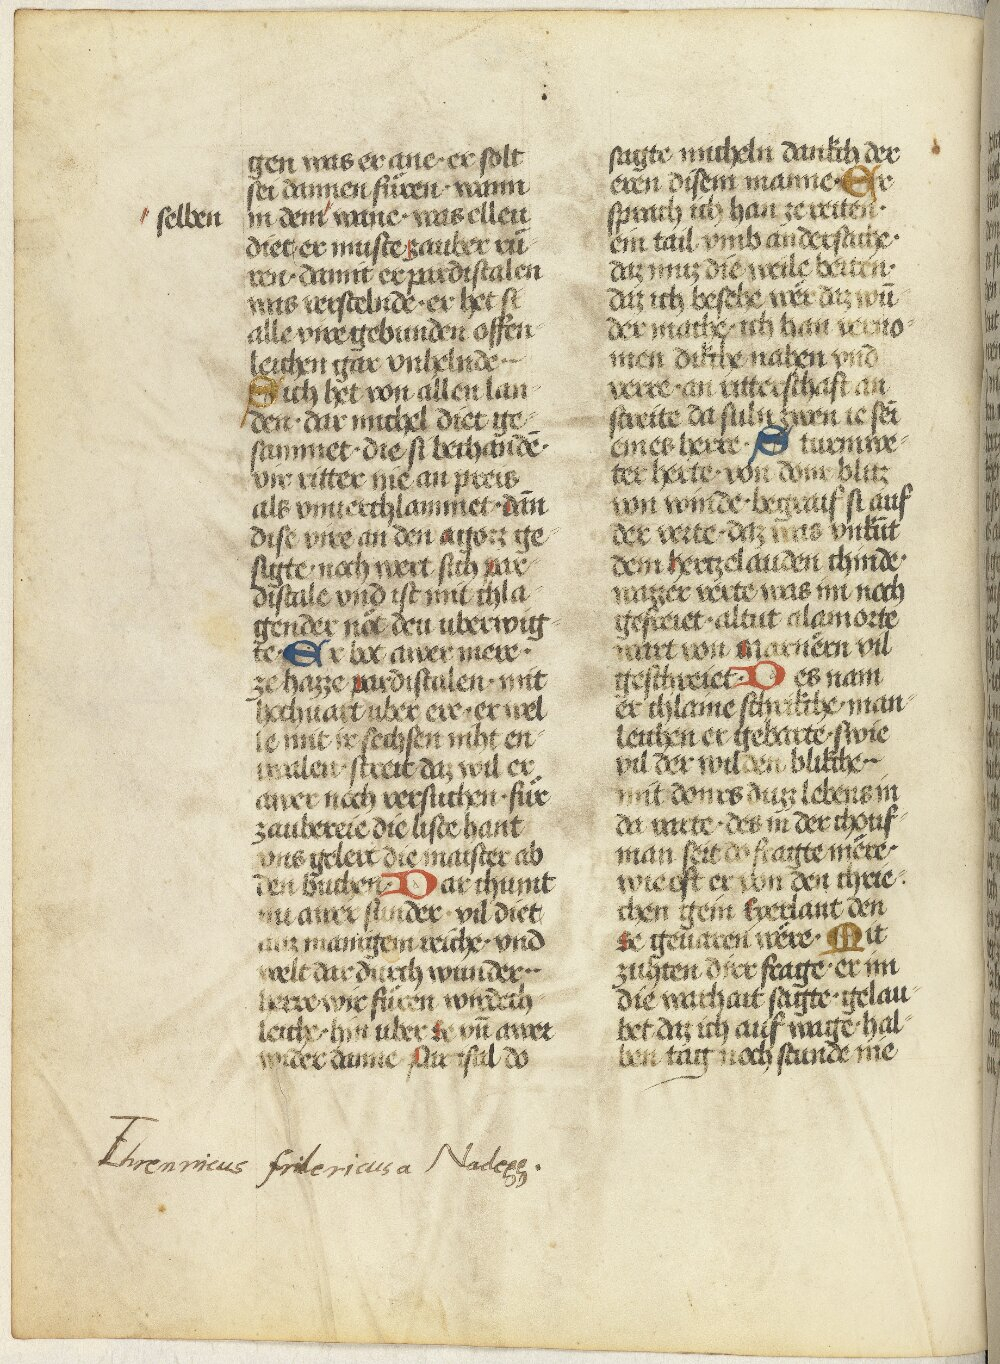 gen was er ane · er solt
sei dannen füren · wann
selben
in dem wane · was ellen
diet · er muste zauber rü-
ren · damit er pardistalen
was verstelnde · er het si
alle vire gebunden offen-
leichen gar vnhelnde ·
Sich het von allen lan-
den · dar michel diet ge-
sammet · die si bechande͞ ·
vir ritter nie an preis
als vnuerchlammet · dan̄
dise vire an den agorz ge-
sigte · noch wert sich par-
distale vnd ist mit chla-
gender not den uberwig-
te · Er bot awer mere ·
ze hazze pardistalen · mit
hochuart uber ere · er wel
le mit ir sechsen niht en-
weilen · streit daz wil er
awer noch versuchen · für
zaubereie die liste hant
vns gelert die maister ab
den buchen · Dar chumt
nu awer sunder · vil diet
auz manigem reiche · vnd
welt dar durch wunder ·
herre wir füren wirdich-
leiche · hin uber se vn̄ awer
wider danne Parcifal do
sagte micheln dankch der
eren disem manne · Er
sprach ich han ze reiten ·
ein tail vmb andersache ·
daz muz die weile beiten ·
daz ich besehe wer daz wū-
der mache · ich han verno-
men dikche nahen vnd
verre · an ritterschaft an
streite da suln zwen ie sei͞
eines herre · Sturmwe-
ter herte · von donr blitz
von winde · begraif si auf
der verte · daz was vnku͞t
dem hertzelauden chinde ·
wazzer verte was im noch
gefreiet · altut alamorte
wart von marnern vil
geschreiet · Des nam
er chlaine schrikche · man-
leichen er gebarte · swie
vil der wilden blikche ·
mit donrs duzz lebens in
da varte · des in der chouf-
man seit do fragte mere ·
wie oft er von den chrie-
chen gein Everlant den
se geuaren were · Mit
zuhten dirr frage · er im
die warhait sagte · gelau-
bet daz ich auf wage · hal-
ben tag noch stunde nie
Ehrenricus fridericus a Nadegg.